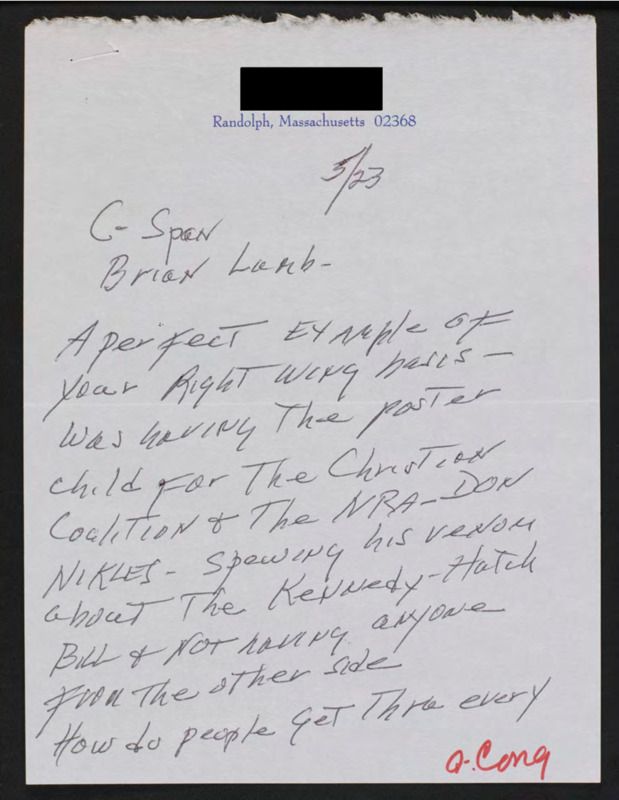 Randolph, Massachusetts 02368
5/23
C- Span
Brian Lamb-
A perfect Example of
your Right Wing basis -
was having The poster
child for The Christian
Coalition & The NRA-DON
NIKLES - Spewing his venom
about The Kennedy-Hatch
Bill & Not having anyone
from The other side
How do people get Thru every
Q-Cong